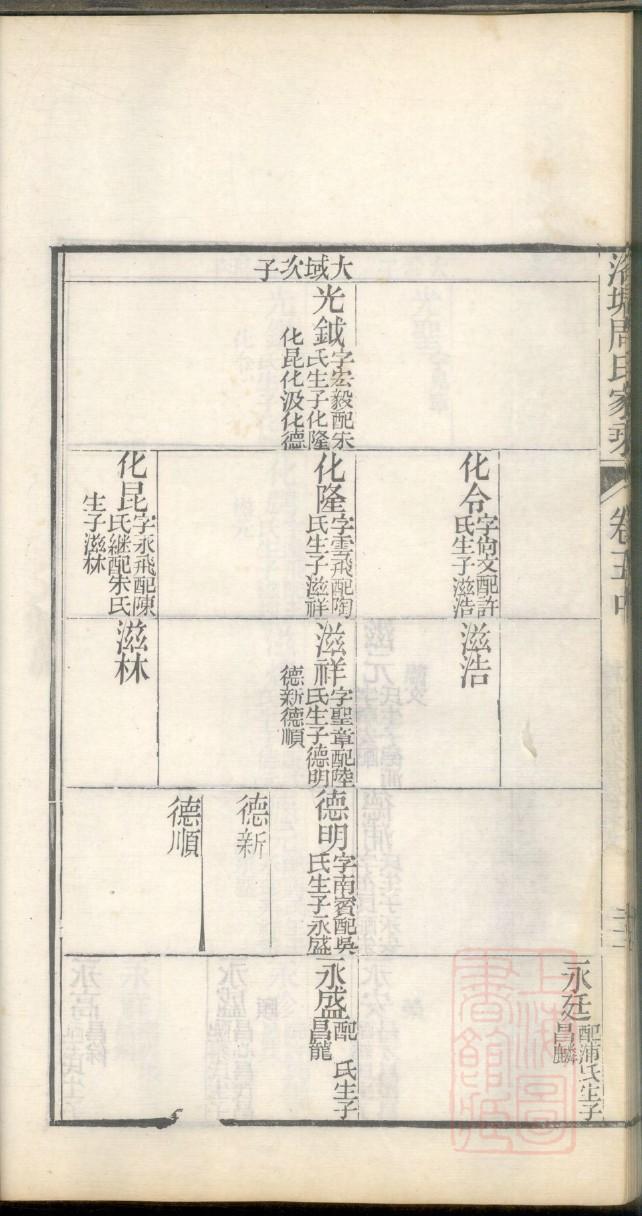 周氏家乘
卷五中
化令
字尙文配許
氏生子滋浩
滋浩
永廷
配浦氏生子
昌麟
大域次子
光鉞
字宏毅配宋
氏生子化隆
化昆化汲化德
化隆
字雲飛配陶
氏生子滋祥
滋祥
字聖章配陸
氏生子德明
德新德順
德明
字南賓配吳
氏生子永盛
永盛
配　氏生子
昌龍
德新
德順
化昆
字永飛配陳
氏継配朱氏
生子滋林
滋林
上海圖
書館藏